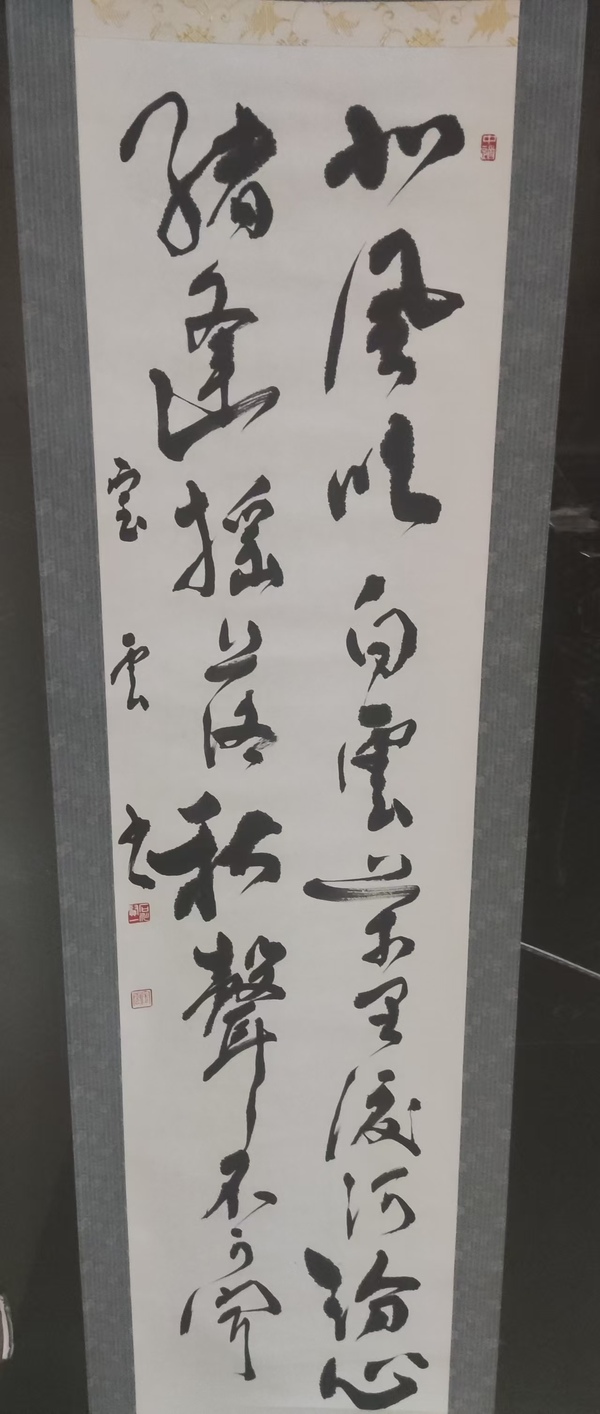 北風吹白雲萬里渡河汾心
緒逢搖落秋聲不可聞
雲書